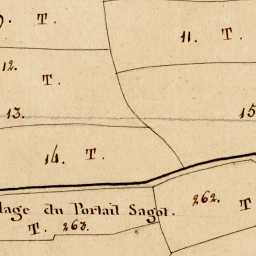 T.
11. T.
12.
T.
13.
15
14. T.
262. T
lage du Portail Sagot.
T. 263.